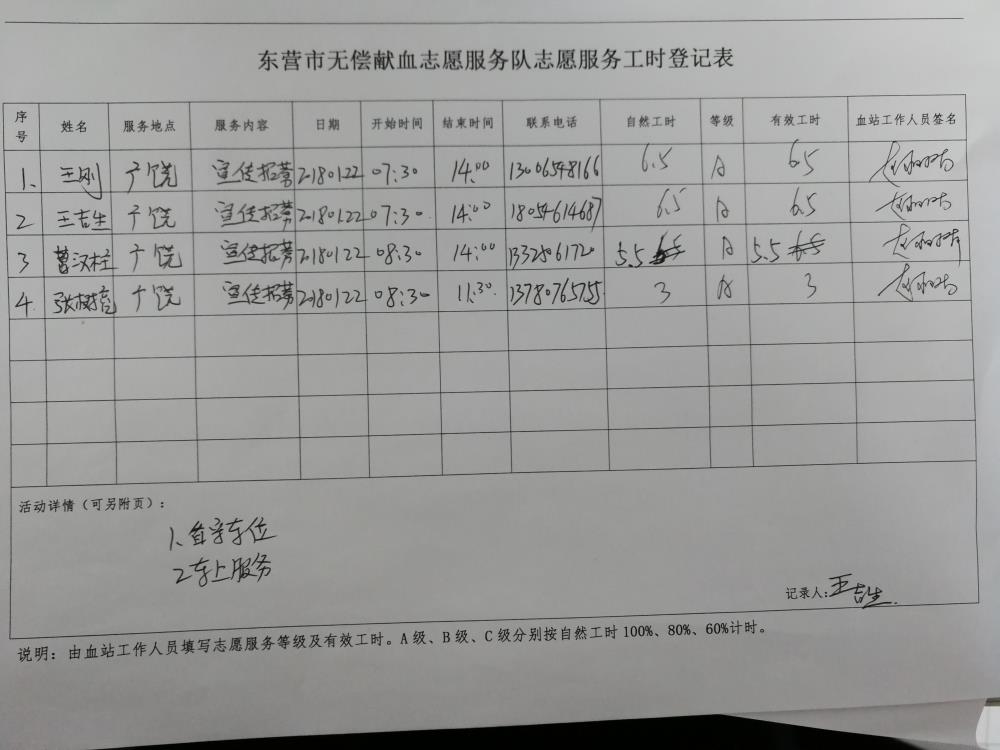 东营市无偿献血志愿服务队志愿服务工时登记表
序号 姓名 服务地点 服务内容 日期 开始时间 结束时间 联系电话 自然工时 等级 有效工时 血站工作人员签名
1. 王刚 广饶 宣传招募 20180122 07:30 14:00 13006548166 6.5 A 6.5
2 王吉生 广饶 宣传招募 20180122 07:30 14:00 18054614687 6.5 A 6.5
3 曹汉柱 广饶 宣传招募 20180122 08:30 14:00 13325061720 5.5 A 5.5
4. 张树 广饶 宣传招募 20180122 08:30 11:30 13780765755 3 A 3
活动详情（可另附页）：
1、车位
2车上服务
记录人：王吉生
说明：由血站工作人员填写志愿服务等级及有效工时。A级、B级、C级分别按自然工时100%、80%、60%计时。